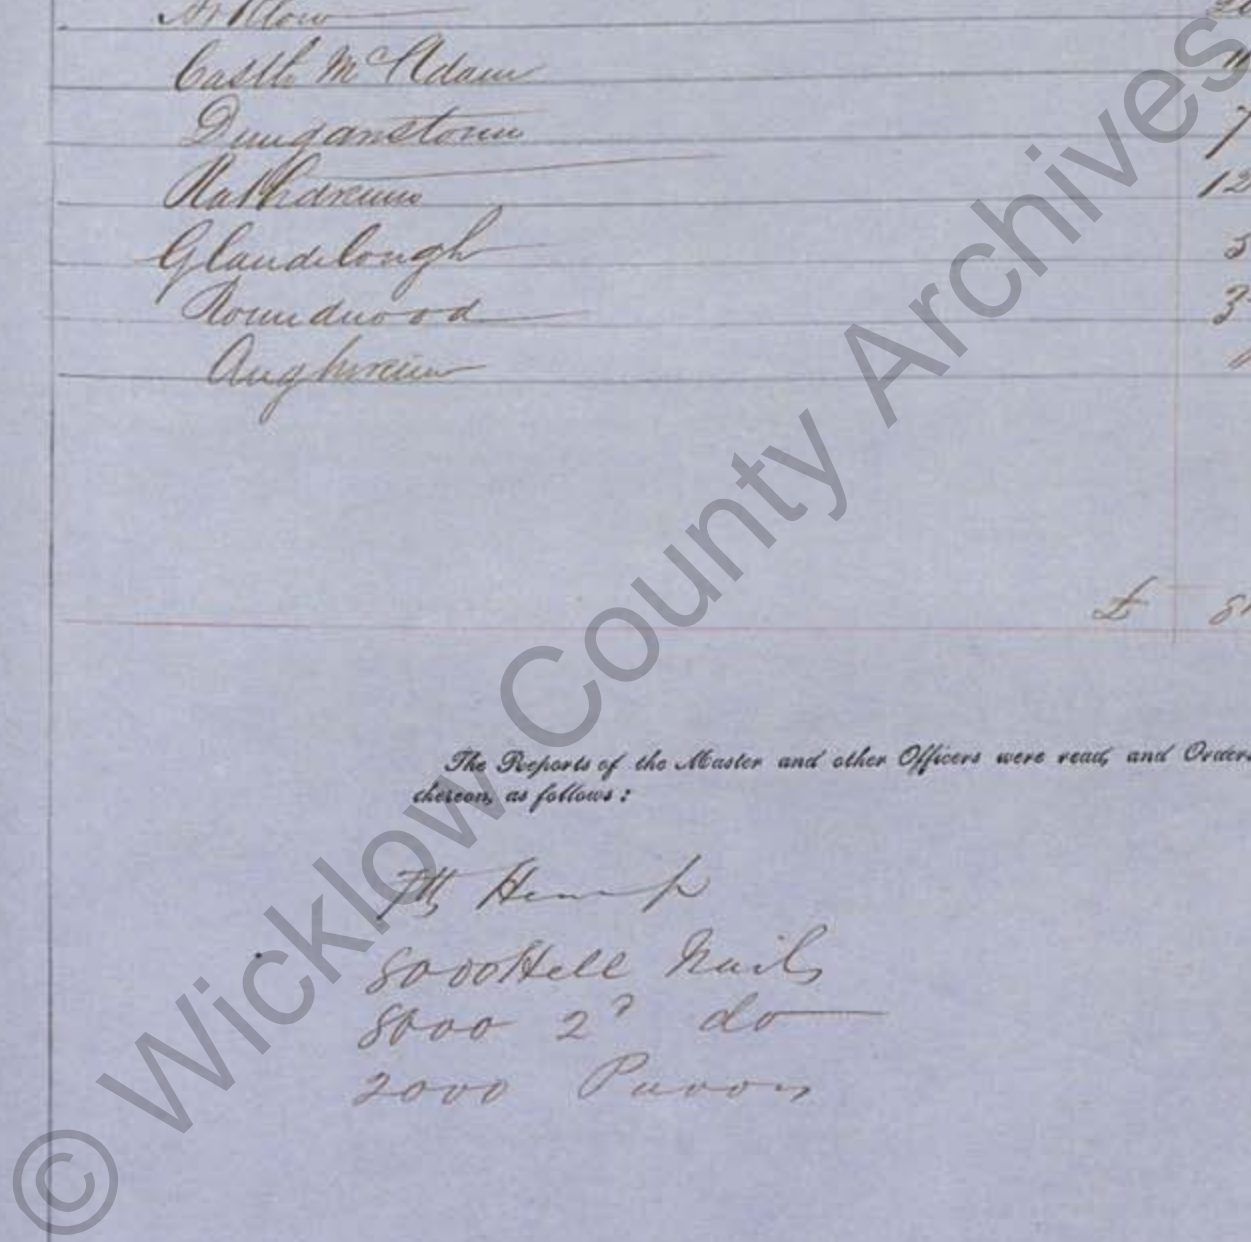 Arklow 20
Castle McAdam
Dunganstown 7
Rathdrum 12
Glandelough 5
Roundwood 3
Aughrim
£
The Reports of the Master and other Officers were read, and Orders
thereon, as follows:
7 lb Hemp
8000 Hell Nails
8000 2d do
2000 
© Wicklow County Archives